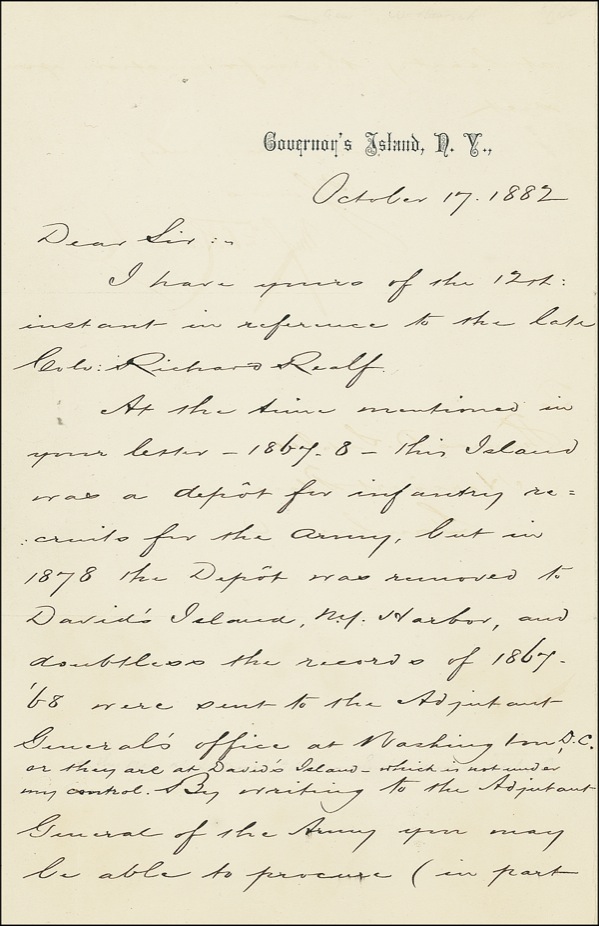 Governor's Island, N. Y.,
October 17. 1882
Dear Sir:-
I have yours of the 12th:
instant in reference to the late
Col: Richard Realf.
At the time mentioned in
your letter - 1867-8 - this Island
was a depôt for infantry re=
:cruits for the Army, but in
1878 the Depôt was removed to
David's Island, N.Y. Harbor, and
doubtless the records of 1867-
'68 were sent to the Adjutant
General's office at Washington, D.C.
or they are at David's Island - which is not under
my control. By writing to the Adjutant
General of the Army you may
be able to procure (in part